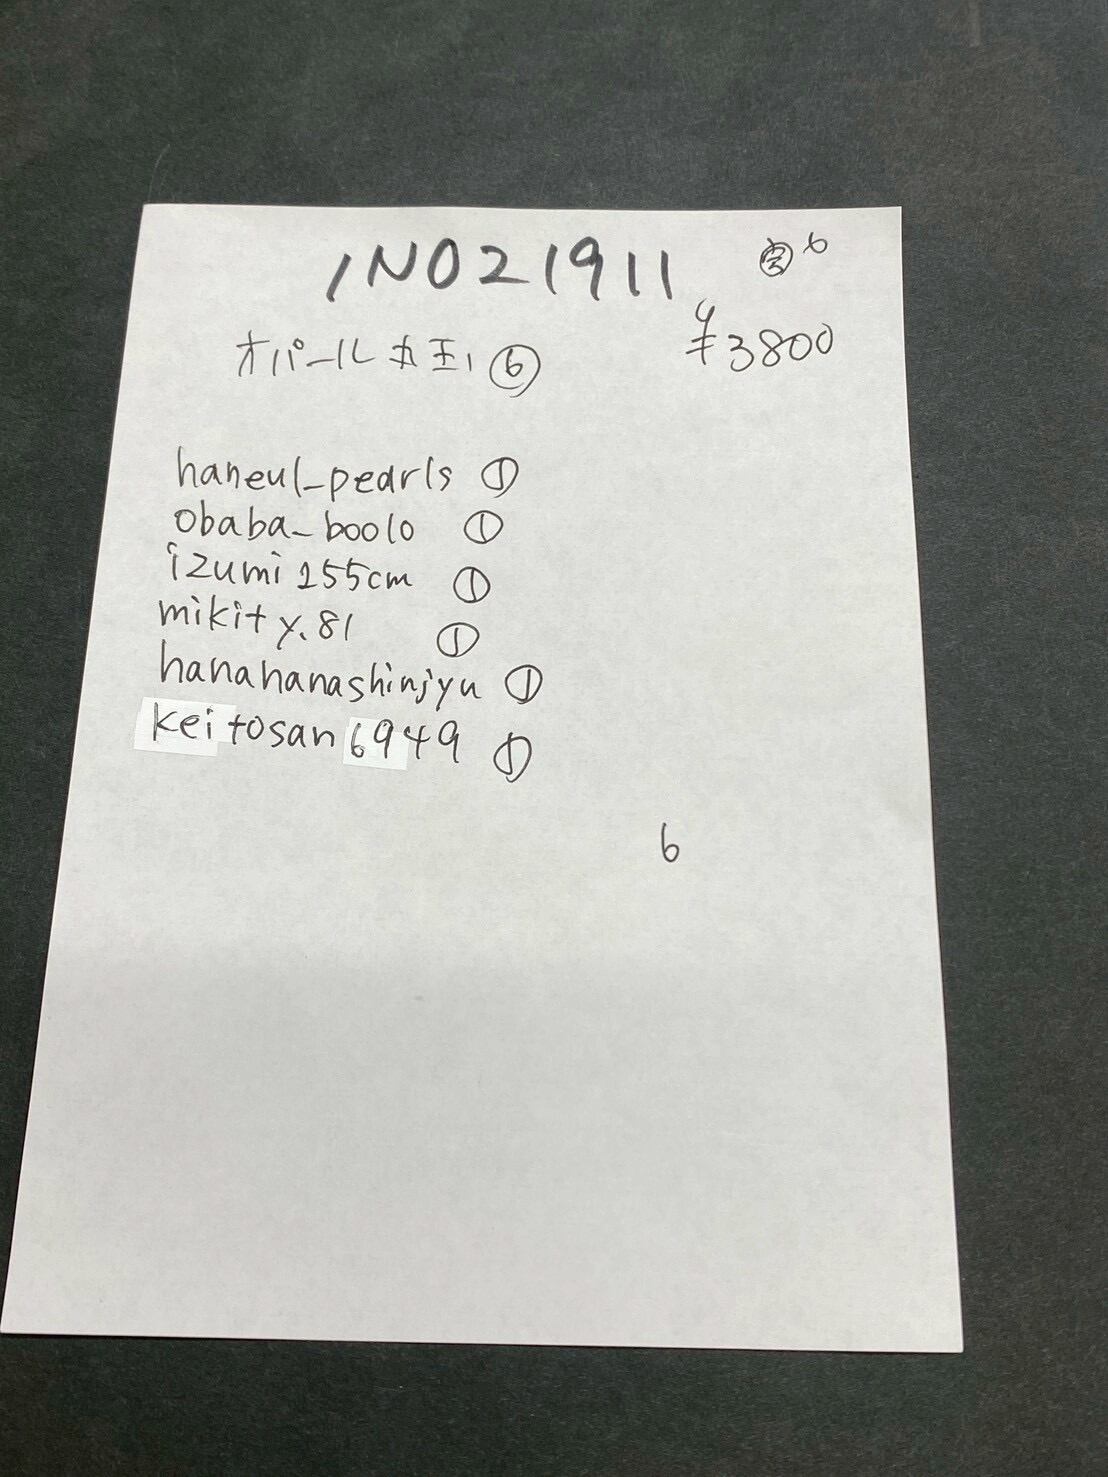 INO21911
6
¥3800
オパール丸玉 ⑥
haneul_pearls ①
obaba_boolo ①
izumi255cm ①
mikity.81 ①
hanahanashinjyu ①
keitosan6949 ①
6